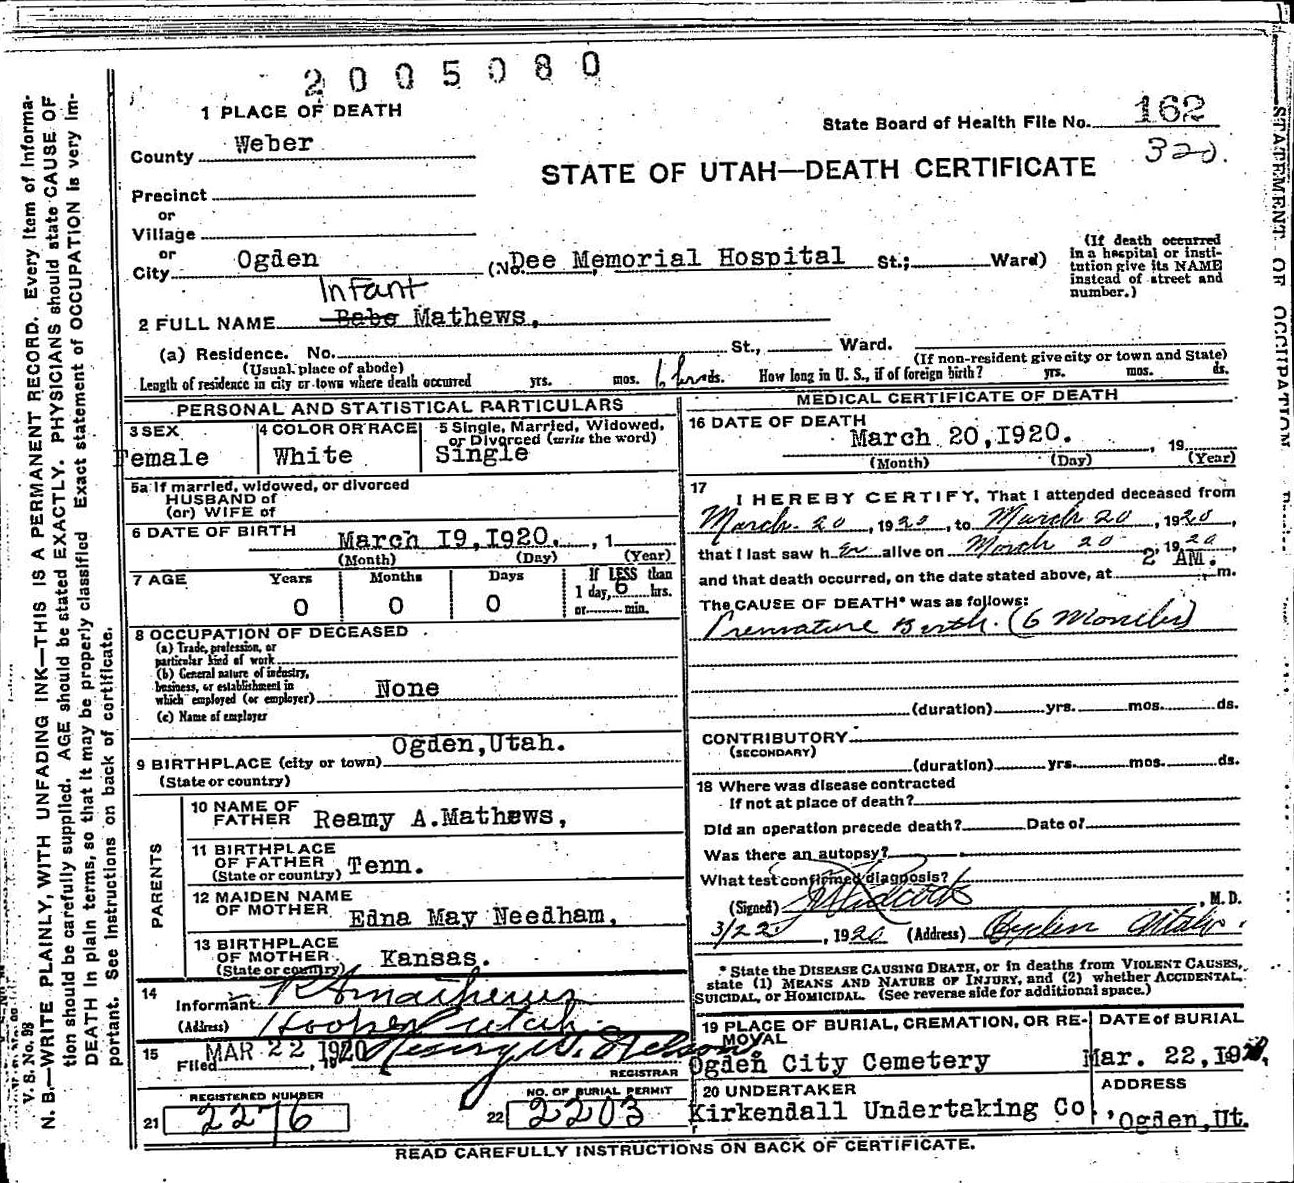 2005080
1 PLACE OF DEATH
State Board of Health File No. 162
320.
County Weber
STATE OF UTAH—DEATH CERTIFICATE
Precinct
or
Village
or
City Ogden (No. Dee Memorial Hospital St.; Ward)
(If death occurred in a hospital or insti-
tution give its NAME
instead of street and
number.)
Infant
2 FULL NAME Babe Mathews,
(a) Residence. No. St., Ward.
(Usual place of abode) (If non-resident give city or town and State)
Length of residence in city or town where death occurred yrs. mos. 6 hrs ds. How long in U. S., if of foreign birth? yrs. mos. ds.
PERSONAL AND STATISTICAL PARTICULARS
3 SEX
Female
4 COLOR OR RACE
White
5 Single, Married, Widowed,
or Divorced (write the word)
Single
5a If married, widowed, or divorced
HUSBAND of
(or) WIFE of
6 DATE OF BIRTH
March I9,I920. , 1
(Month) (Day) (Year)
7 AGE Years Months Days If LESS than
1 day, 6 hrs.
or min.
0 0 0
8 OCCUPATION OF DECEASED
(a) Trade, profession, or
particular kind of work
(b) General nature of industry,
business, or establishment in
which employed (or employer) None
(c) Name of employer
Ogden,Utah.
9 BIRTHPLACE (city or town)
(State or country)
PARENTS
10 NAME OF
FATHER Reamy A.Mathews,
11 BIRTHPLACE
OF FATHER
(State or country) Tenn.
12 MAIDEN NAME
OF MOTHER Edna May Needham,
13 BIRTHPLACE
OF MOTHER
(State or country) Kansas.
14
Informant R A Mathews
(Address) Hooper Utah
15
Filed MAR 22 1920, 19 Henry W. Nelson
REGISTRAR
REGISTERED NUMBER
21 2276
NO. OF BURIAL PERMIT
22 2203
MEDICAL CERTIFICATE OF DEATH
16 DATE OF DEATH
March 20,I920. , 19
(Month) (Day) (Year)
17
I HEREBY CERTIFY, That I attended deceased from
March 20, 1920, to March 20, 1920,
that I last saw her alive on March 20, 1920,
2 AM.
and that death occurred, on the date stated above, at m.
The CAUSE OF DEATH* was as follows:
Premature Birth. (6 Months)
(duration) yrs. mos. ds.
CONTRIBUTORY
(SECONDARY)
(duration) yrs. mos. ds.
18 Where was disease contracted
If not at place of death?
Did an operation precede death? Date of
Was there an autopsy?
What test confirmed diagnosis?
(Signed) , M. D.
3/22, 1920 (Address) Ogden Utah.
* State the DISEASE CAUSING DEATH, or in deaths from VIOLENT CAUSES,
state (1) MEANS AND NATURE OF INJURY, and (2) whether ACCIDENTAL,
SUICIDAL, or HOMICIDAL. (See reverse side for additional space.)
19 PLACE OF BURIAL, CREMATION, OR RE-
MOVAL
Ogden City Cemetery
DATE of BURIAL
Mar. 22,I920,
20 UNDERTAKER
Kirkendall Undertaking Co.,
ADDRESS
Ogden,Ut.
READ CAREFULLY INSTRUCTIONS ON BACK OF CERTIFICATE.
V. S. No. 98
N. B.—WRITE PLAINLY, WITH UNFADING INK—THIS IS A PERMANENT RECORD. Every item of informa-
tion should be carefully supplied. AGE should be stated EXACTLY. PHYSICIANS should state CAUSE OF
DEATH in plain terms, so that it may be properly classified. Exact statement of OCCUPATION is very im-
portant. See instructions on back of certificate.
STATEMENT OF OCCUPATION